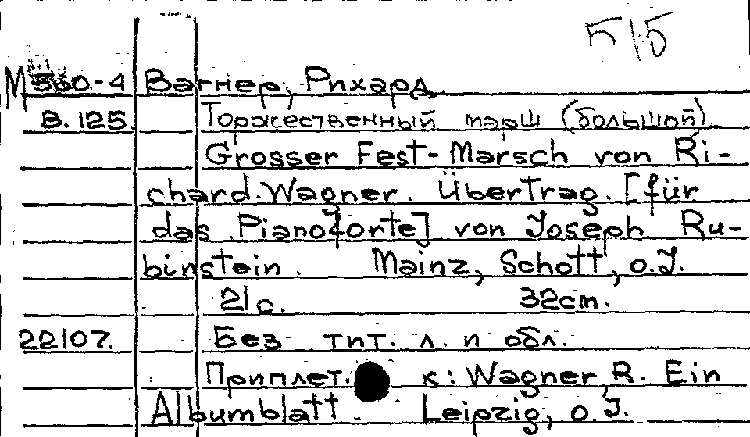 515
М560-4 Вагнер, Рихард
В.125 Торжественный марш (большой)
Grosser Fest-Marsch von Ri-
chard Wagner. Übertrag. [für
das Pianoforte] von Joseph Ru-
binstein. Mainz, Schott, o.J.
21 с. 32 cm.
22107. Без тит. л. и обл.
Приплет. к: Wagner, R. Ein
Albumblatt. Leipzig, o.J.